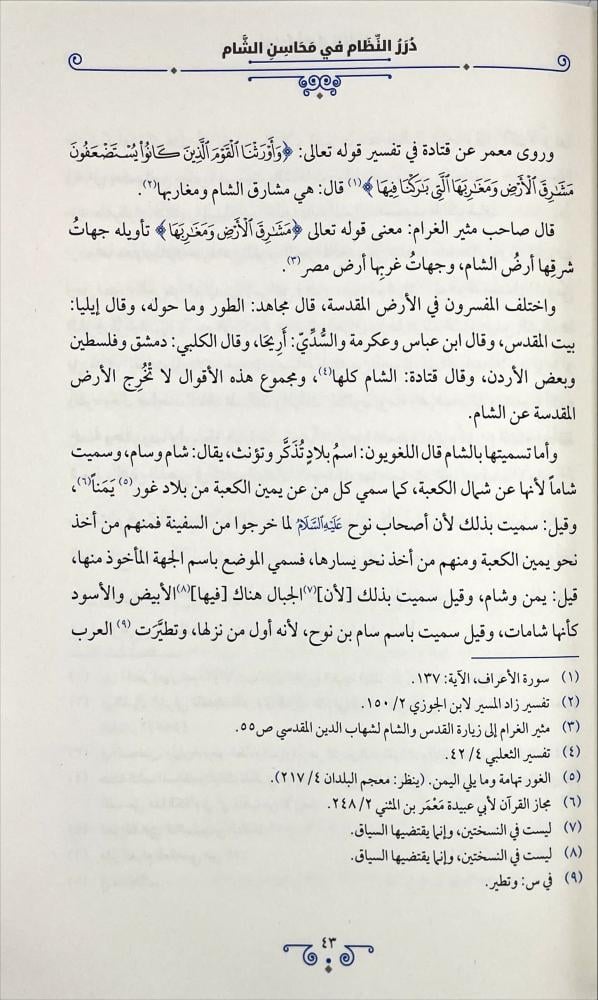 دُرَرُ النِّظَام في مَحَاسِنِ الشَّام
وروى معمر عن قتادة في تفسير قوله تعالى: ﴿وَأَوْرَثْنَا الْقَوْمَ الَّذِينَ كَانُوا يُسْتَضْعَفُونَ
مَشَارِقَ الْأَرْضِ وَمَغَارِبَهَا الَّتِي بَارَكْنَا فِيهَا﴾(١) قال: هي مشارق الشام ومغاربها(٢).
قال صاحب مثير الغرام: معنى قوله تعالى ﴿مَشَارِقَ الْأَرْضِ وَمَغَارِبَهَا﴾ تأويله جهاتُ
شرقِها أرضُ الشام، وجهاتُ غربِها أرض مصر(٣).
واختلف المفسرون في الأرض المقدسة، قال مجاهد: الطور وما حوله، وقال إيليا:
بيت المقدس، وقال ابن عباس وعكرمة والسُّدِّيّ: أَرِيحَا، وقال الكلبي: دمشق وفلسطين
وبعض الأردن، وقال قتادة: الشام كلها(٤)، ومجموع هذه الأقوال لا تُخْرِج الأرض
المقدسة عن الشام.
وأما تسميتها بالشام قال اللغويون: اسمُ بلادٍ تُذَكَّر وتؤنث، يقال: شام وسام، وسميت
شاماً لأنها عن شمال الكعبة، كما سمي كل من عن يمين الكعبة من بلاد غور(٥) يَمَناً(٦)،
وقيل: سميت بذلك لأن أصحاب نوح عَلَيْهِ السَّلَامُ لما خرجوا من السفينة فمنهم من أخذ
نحو يمين الكعبة ومنهم من أخذ نحو يسارها، فسمي الموضع باسم الجهة المأخوذ منها،
قيل: يمن وشام، وقيل سميت بذلك [لأن](٧)الجبال هناك [فيها](٨)الأبيض والأسود
كأنها شامات، وقيل سميت باسم سام بن نوح، لأنه أول من نزلها، وتطيَّرَت(٩) العرب
(١) سورة الأعراف، الآية: ١٣٧.
(٢) تفسير زاد المسير لابن الجوزي ٢/ ١٥٠.
(٣) مثير الغرام إلى زيارة القدس والشام لشهاب الدين المقدسي ص٥٥.
(٤) تفسير الثعلبي ٤/ ٤٢.
(٥) الغور تهامة وما يلي اليمن. (ينظر: معجم البلدان ٤/ ٢١٧).
(٦) مجاز القرآن لأبي عبيدة مَعْمَر بن المثني ٢/ ٢٤٨.
(٧) ليست في النسختين، وإنما يقتضيها السياق.
(٨) ليست في النسختين، وإنما يقتضيها السياق.
(٩) في س: وتطير.
٤٣